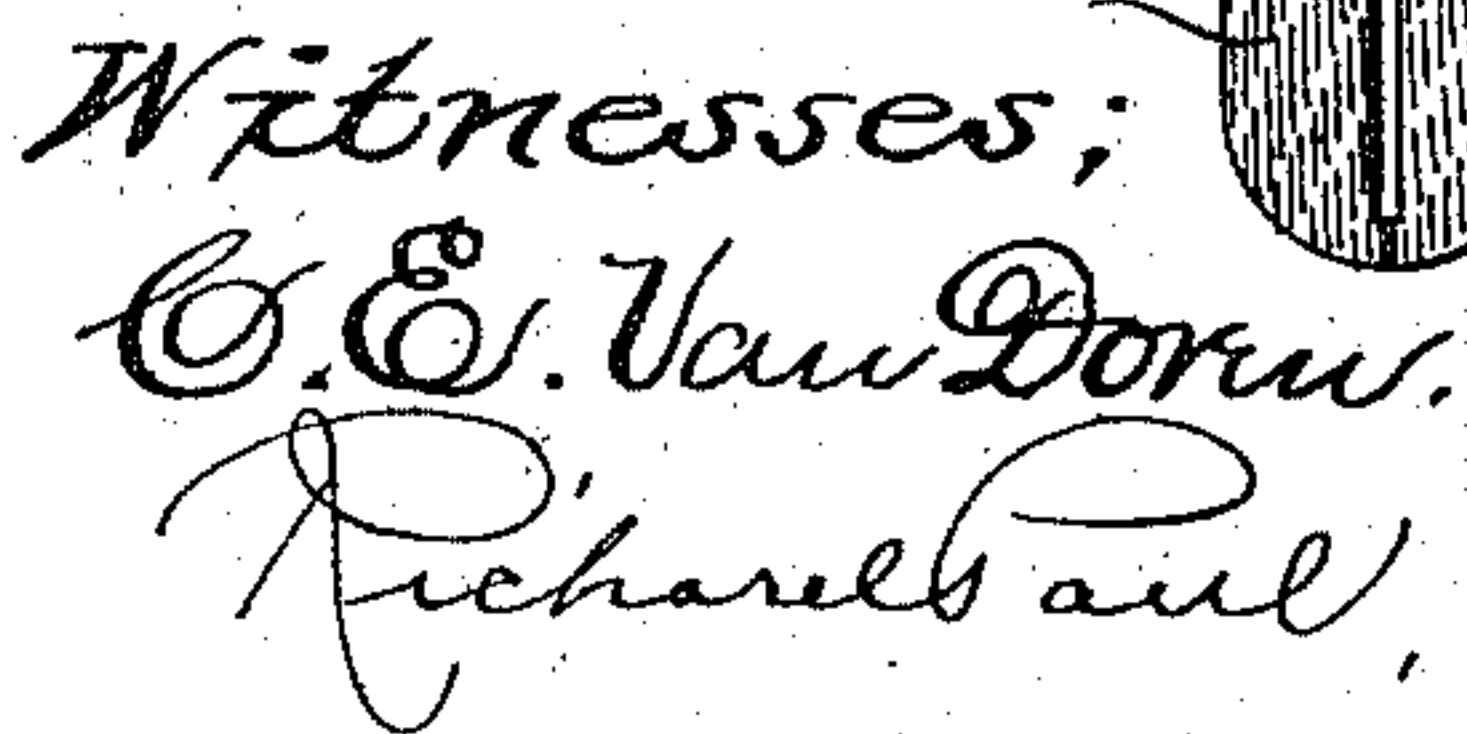 Witnesses;
C. E. Van Doren.
Richard Paul,